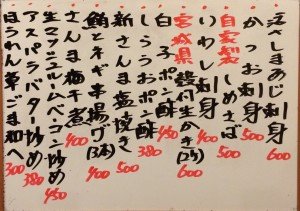 活〆さばあじ刺身 600
かつお刺身 500
自家製 しめさば 500
いわし刺身 400
宮城県 殻付生かき(2ケ) 600
白子ポン酢 450
しらうおポン酢 380
新さんま塩焼き 500
鮪とネギ串揚げ(3本) 400
さんま梅干煮 400
生マッシュルームベーコン炒め 450
アスパラバター炒め 380
ほうれん草ごま和へ 300